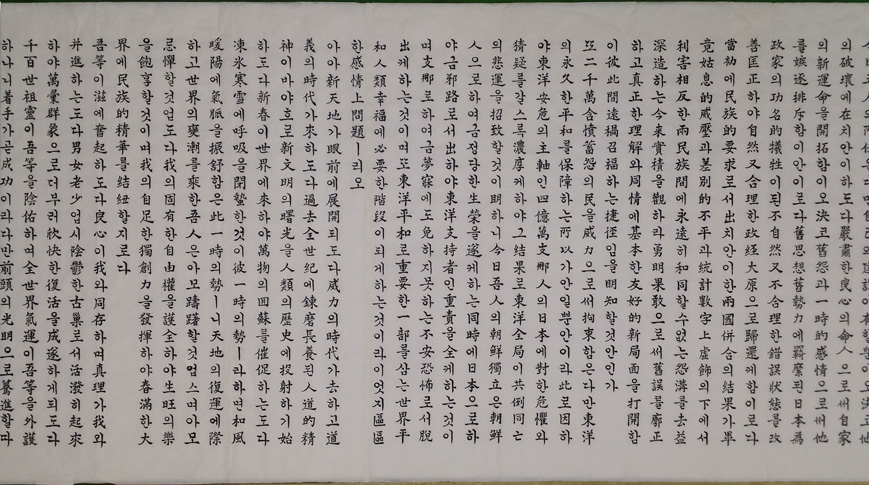 의破壞에在치안이하도다嚴肅한良心의命人으로써自家
의新運命을開拓함이오決코舊怨과一時的感情으로써他
를嫉逐排斥함이안이로다舊思想舊勢力에羈縻된日本為
政家의功名的犧牲이된不自然又不合理한錯誤狀態를改
善匡正하야自然又合理한政經大原으로歸還케함이로다
當初에民族的要求로서出치안이한兩國併合의結果가畢
竟姑息的威壓과差別的不平과統計數字上虛飾의下에서
利害相反한兩民族間에永遠히和同할수없는怨溝를去益
深造하는今來實績을觀하라勇明果敢으로써舊誤를廓正
하고真正한理解와同情에基本한友好的新局面을打開함
이彼此間遠禍召福하는捷徑임을明知할것안인가
또二千萬含憤蓄怨의民을威力으로써拘束함은다만東洋
의永久한平和를保障하는所以가안일뿐안이라此로因하
야東洋安危의主軸인四億萬支那人의日本에對한危懼와
猜疑를갈스록濃厚케하야그結果로東洋全局이共倒同亡
의悲運을招致할것이明하니今日吾人의朝鮮獨立은朝鮮
人으로하여금正當한生榮을遂케하는同時에日本으로하
야금邪路로서出하야東洋支持者인重責을全케하는것이
며支那로하여금夢寐에도免하지못하는不安恐怖로서脫
出케하는것이며또東洋平和로重要한一部를삼는世界平
和人類幸福에必要한階段이되게하는것이라이엇지區區
한感情上問題ㅣ리오
아아新天地가眼前에展開되도다威力의時代가去하고道
義의時代가來하도다過去全世紀에鍊磨長養된人道的精
神이바야흐로新文明의曙光을人類의歷史에投射하기始
하도다新春이世界에來하야萬物의回蘇를催促하는도다
凍氷寒雪에呼吸을閉蟄한것이彼一時의勢ㅣ라하면和風
暖陽에氣脈을振舒함은此一時의勢ㅣ니天地의復運에際
하고世界의變潮를乘한吾人은아모躊躇할것업스며아모
忌憚할것업도다我의固有한自由權을護全하야生旺의樂
을飽享할것이며我의自足한獨創力을發揮하야春滿한大
界에民族的精華를結紐할지로다
吾等이滋에奮起하도다良心이我와同存하며真理가我와
并進하는도다男女老少업시陰鬱한古巢로서活潑히起來
하야萬彙群象으로더부러欣快한復活을成遂하게되도다
千百世祖靈이吾等을陰佑하며全世界氣運이吾等을外護
하나니着手가곧成功이라다만前頭의光明으로驀進할따